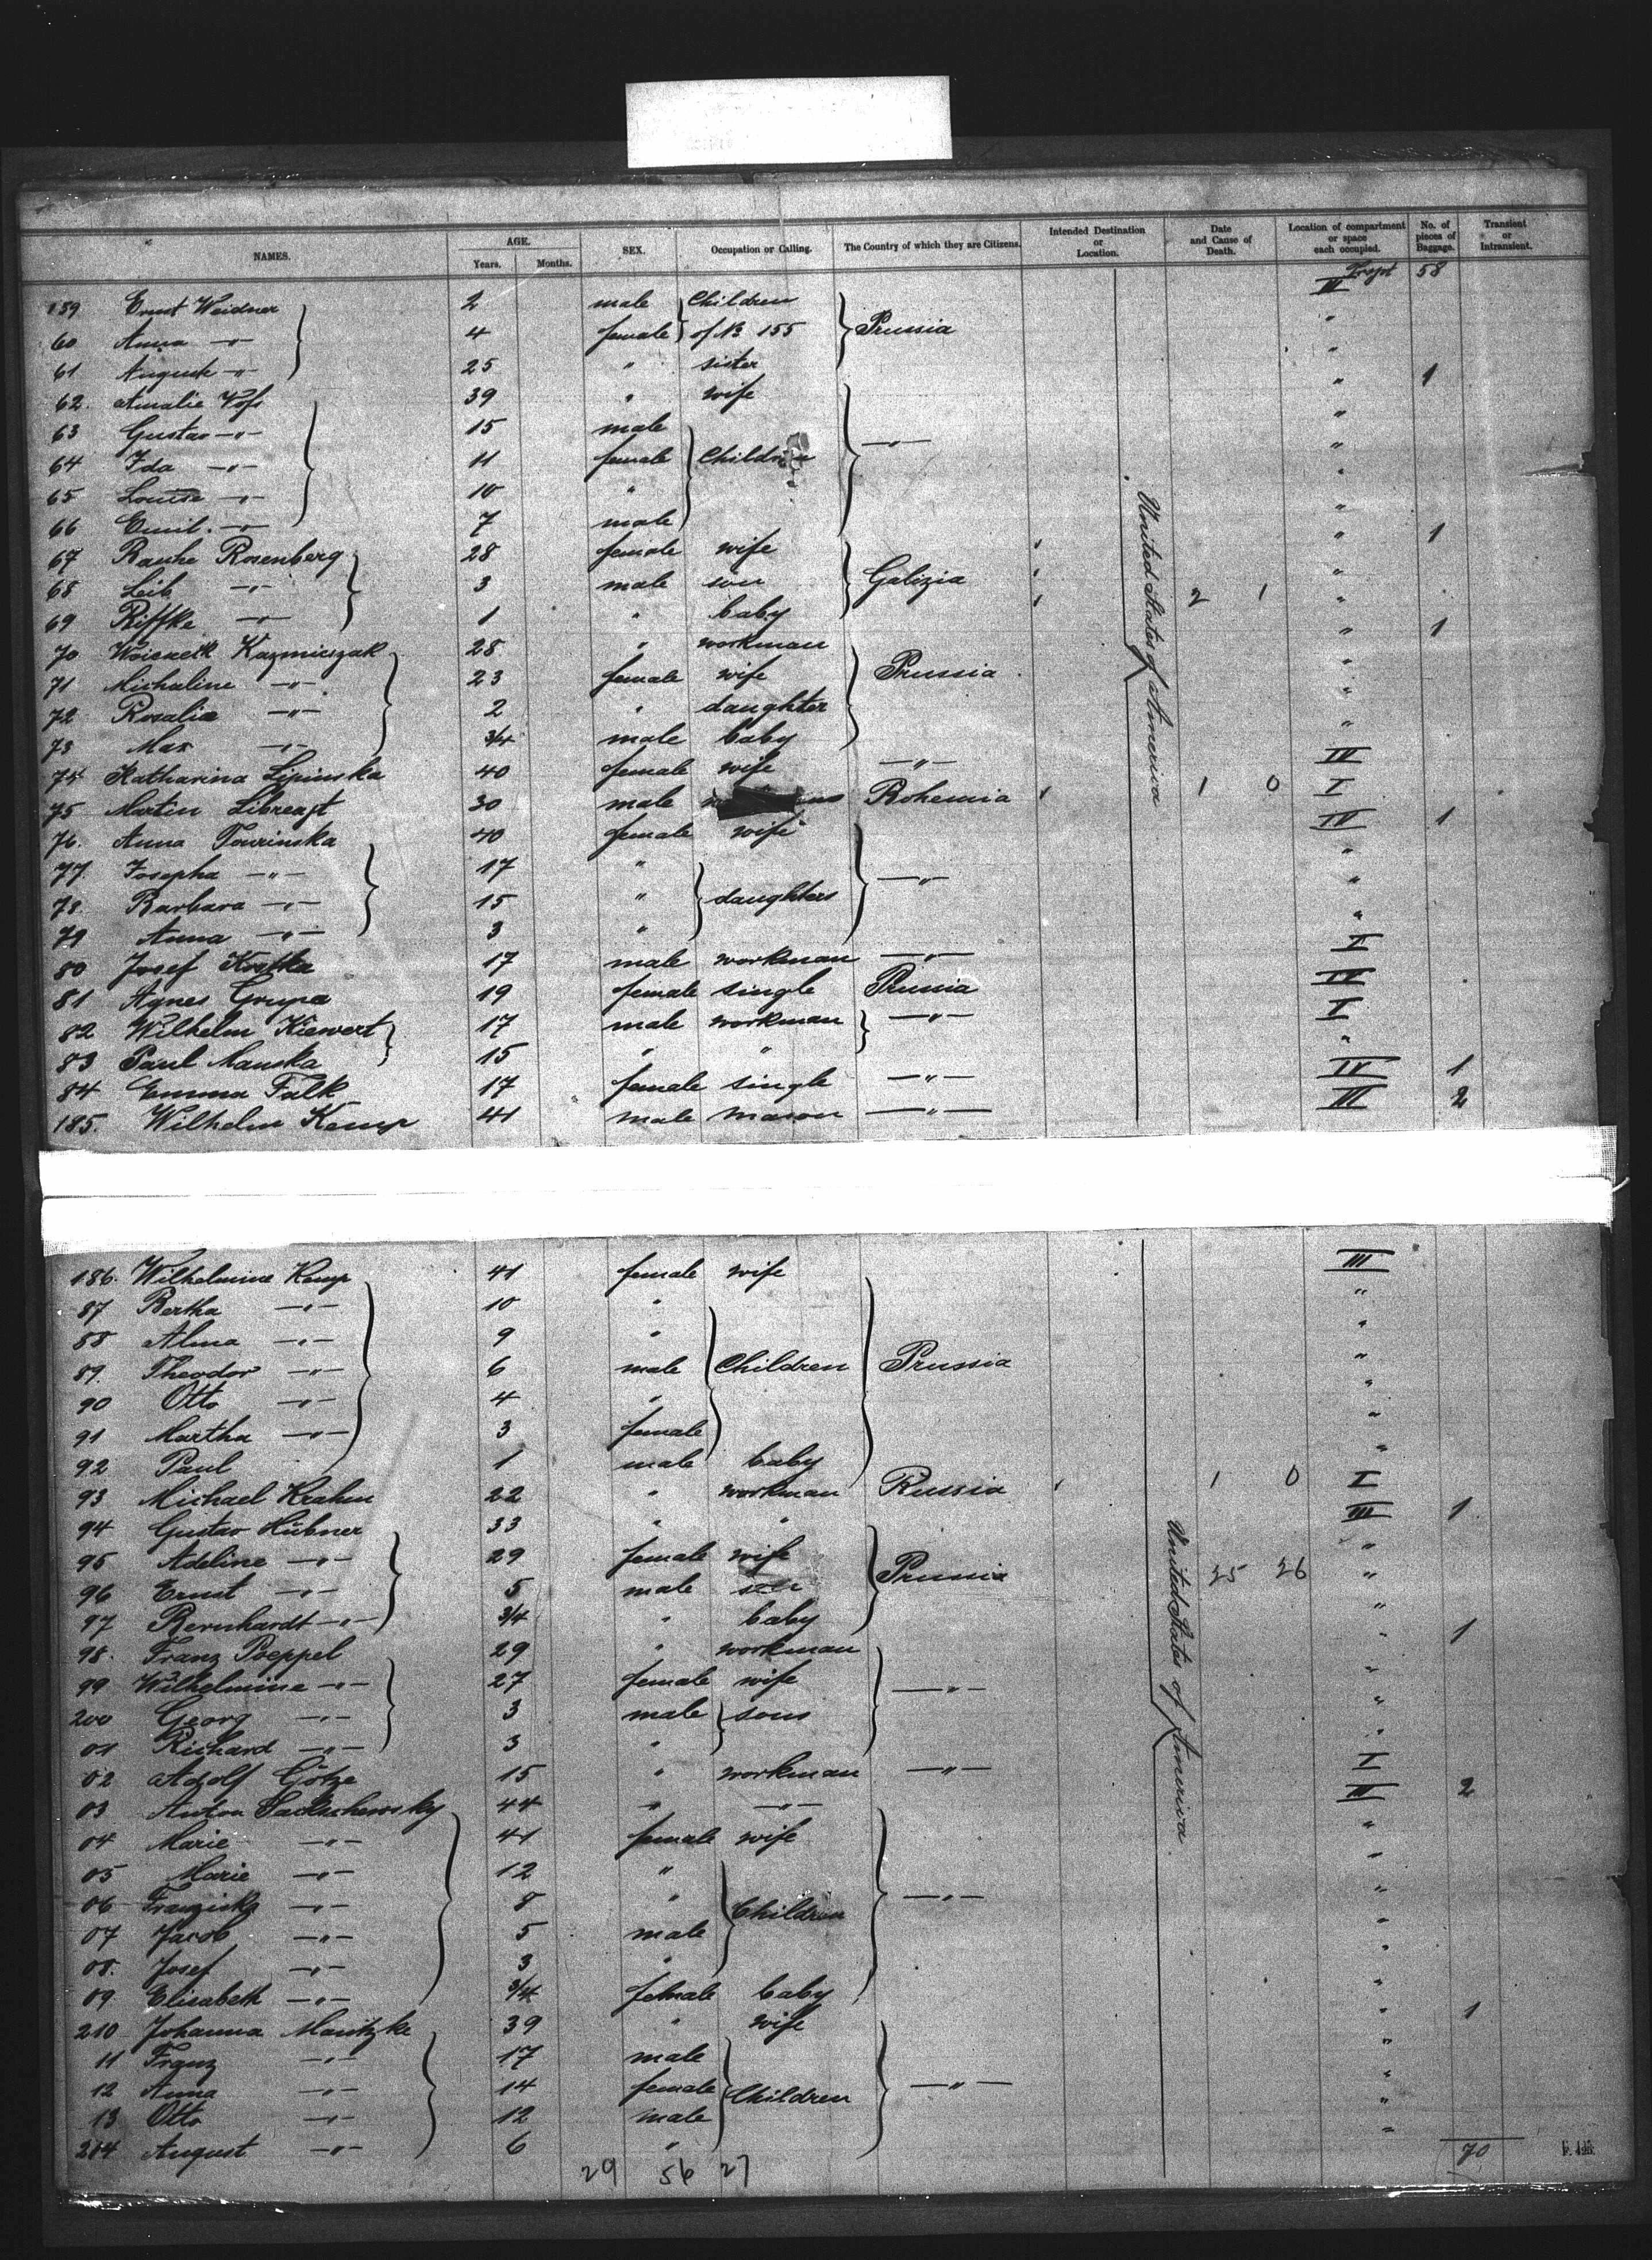 NAMES. AGE. Years. Months. SEX. Occupation or Calling. The Country of which they are Citizens. Intended Destination or Location. Date and Cause of Death. Location of compartment or space each occupied. No. of pieces of Baggage. Transient or Intransient.
Trspt 58
159 Ernst Weidner 2 male Children III
60 Anna -"- 4 female of No 155 Prussia "
61 August -"- 25 " sister "
62. Amalie Vofs 39 " wife " 1
63 Gustav -"- 15 male "
64 Ida -"- 11 female Children -"- "
65 Louise -"- 10 " "
66 Emil. -"- 7 male "
67 Rauhe Rosenberg 28 female wife " 1
68 Leib -"- 3 male son Galizia "
69 Riffke -"- 1 " baby 2 1 "
70 Kazmierszak 28 " workman " 1
71 Michaline -"- 23 female wife Prussia "
72 Rosalie -"- 2 " daughter "
73 Max -"- 3/4 male baby "
74 Katharina Lipinska 40 female wife -"- IV
75 Martin 30 male Bohemia 1 0 I
76. Anna Tourinska 40 female wife IV 1
77. Josepha -"- 17 " "
78. Barbara -"- 15 " daughters -"- "
79 Anna -"- 3 " "
80 Josef Kostka 17 male workman -"- I
81 Agnes Grupa 19 female single Prussia IV
82 Wilhelm Kiewert 17 male workman -"- I
83 Paul Manska 15 " " "
84 Emma Falk 17 female single -"- IV 1
185. Wilhelm Kemp 41 male mason -"- III 2
United States of America
186. Wilhelmine Kemp 41 female wife III
87 Bertha -"- 10 " "
88 Alma -"- 9 " "
89. Theodor -"- 6 male Children Prussia "
90 Otto -"- 4 " "
91 Martha -"- 3 female "
92 Paul 1 male baby "
93 Michael Krahn 22 " workman Russia 1 0 I
94 Gustav Hübner 33 " " III 1
95 Adeline -"- 29 female wife "
96 Ernst -"- 5 male son Prussia 25 26 "
97 Bernhardt -"- 3/4 " baby "
98. Franz Poeppel 29 " workman " 1
99 Wilhelmine -"- 27 female wife -"- "
200 Georg -"- 3 male sons "
01 Richard -"- 3 " "
02 Adolf Götze 15 " workman -"- I
03 Anton 44 " -"- III 2
04 Marie -"- 41 female wife "
05 Marie -"- 12 " "
06 Franziska -"- 8 " Children -"- "
07 Jacob -"- 5 male "
08. Josef -"- 3 " "
09 Elisabeth -"- 3/4 female baby "
210 Johanna Manitzke 39 " wife " 1
11 Franz -"- 17 male "
12 Anna -"- 14 female Children -"- "
13 Otto -"- 12 male "
214 August -"- 6 " "
United States of America
29 56 27 70